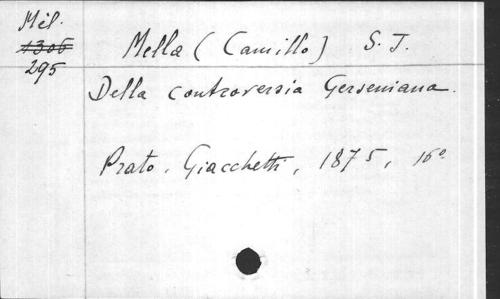 Mil.
1306
295
Mella (Camillo) S. J.
Della controversia Gerseniana.
Prato, Giacchetti, 1875, 16º